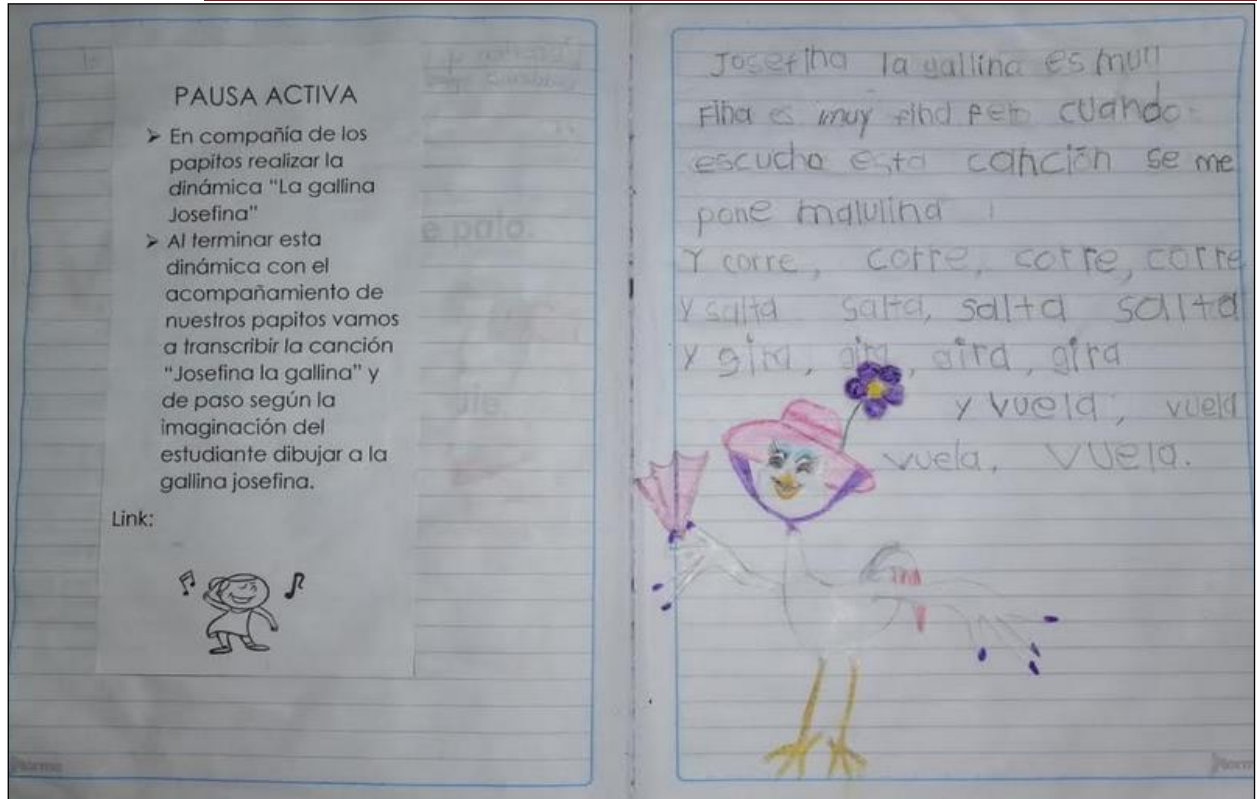 PAUSA ACTIVA
➤ En compañía de los
papitos realizar la
dinámica "La gallina
Josefina"
➤ Al terminar esta
dinámica con el
acompañamiento de
nuestros papitos vamos
a transcribir la canción
"Josefina la gallina" y
de paso según la
imaginación del
estudiante dibujar a la
gallina josefina.
Link:
Josefina la gallina es muy
Fina es muy fina pero cuando
escucha esta canción se me
pone malulina
Y corre, corre, corre, corre
y salta salta, salta salta
y gira, gira, gira, gira
y vuela, vuela
vuela, vuela.
e palo.
Norma
Norma